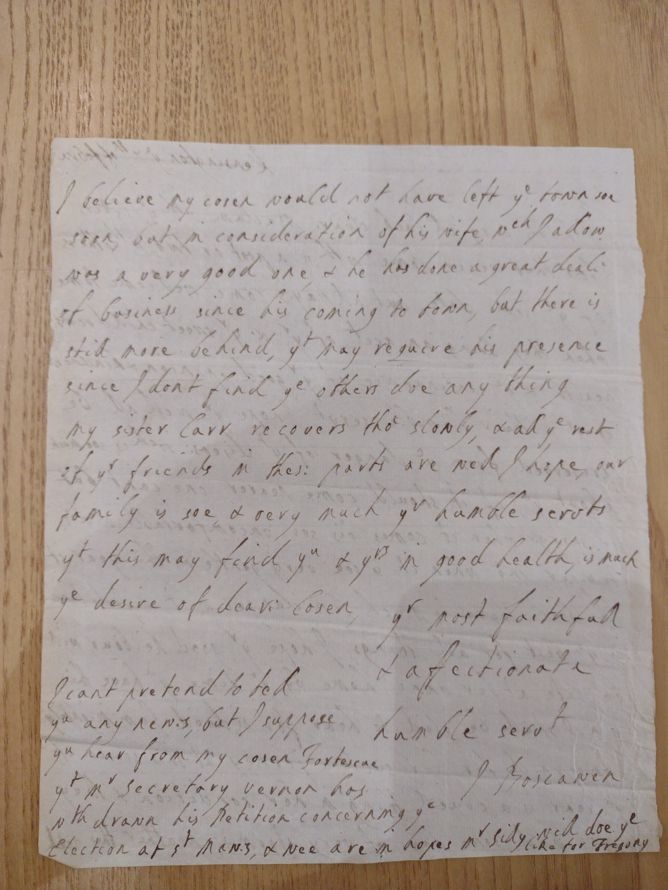 I believe my cosen would not have left yᵉ town soe
soon but in consideration of his wife, wᶜʰ I allow
was a very good one, & he has done a great deal:
of business since his coming to town, but there is
still more behind, yᵗ may require his presence
since I dont find yᵉ others doe any thing
my sister Carr recovers thᵒ slowly, & all yᵉ rest
of yʳ friends in thes: parts are well, I hope our
family is soe & very much yʳ humble servᵗˢ
yᵗ this may find yᵘ & yʳˢ in good health, is much
yᵉ desire of dear: Cosen,
yʳ most faithfull
& afectionate
humble servᵗ
J Boscawen
I cant pretend to tell
yᵘ any news, but I suppose
yᵘ hear from my cosen Fortescue
yᵗ mʳ secretary vernon has
wᵗʰdrawn his Petition concerning yᵉ
Election at sᵗ maws, & wee are in hopes mʳ will doe yᵉ
like for Tregony